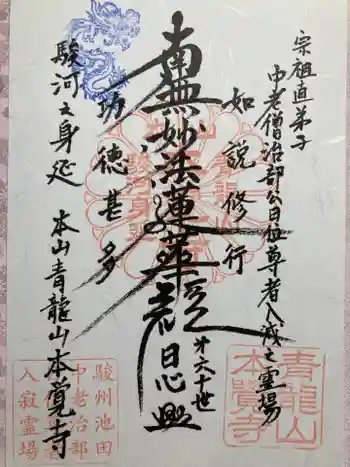 宗祖直弟子
中老僧治部公日位尊者入滅之霊場
如説修行
南無妙法蓮華経
第六十世
日心興
功徳甚多
駿河之身延 本山青龍山本覚寺
青龍山
本覺寺
駿州池田
中老治部
入寂霊場